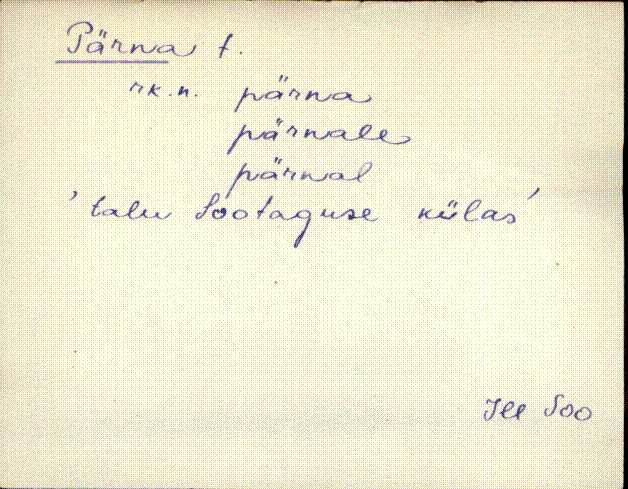 Pärna t.
rk.n. pärna
pärnale
pärnal
'talu Sootaguse külas'
Ille Soo